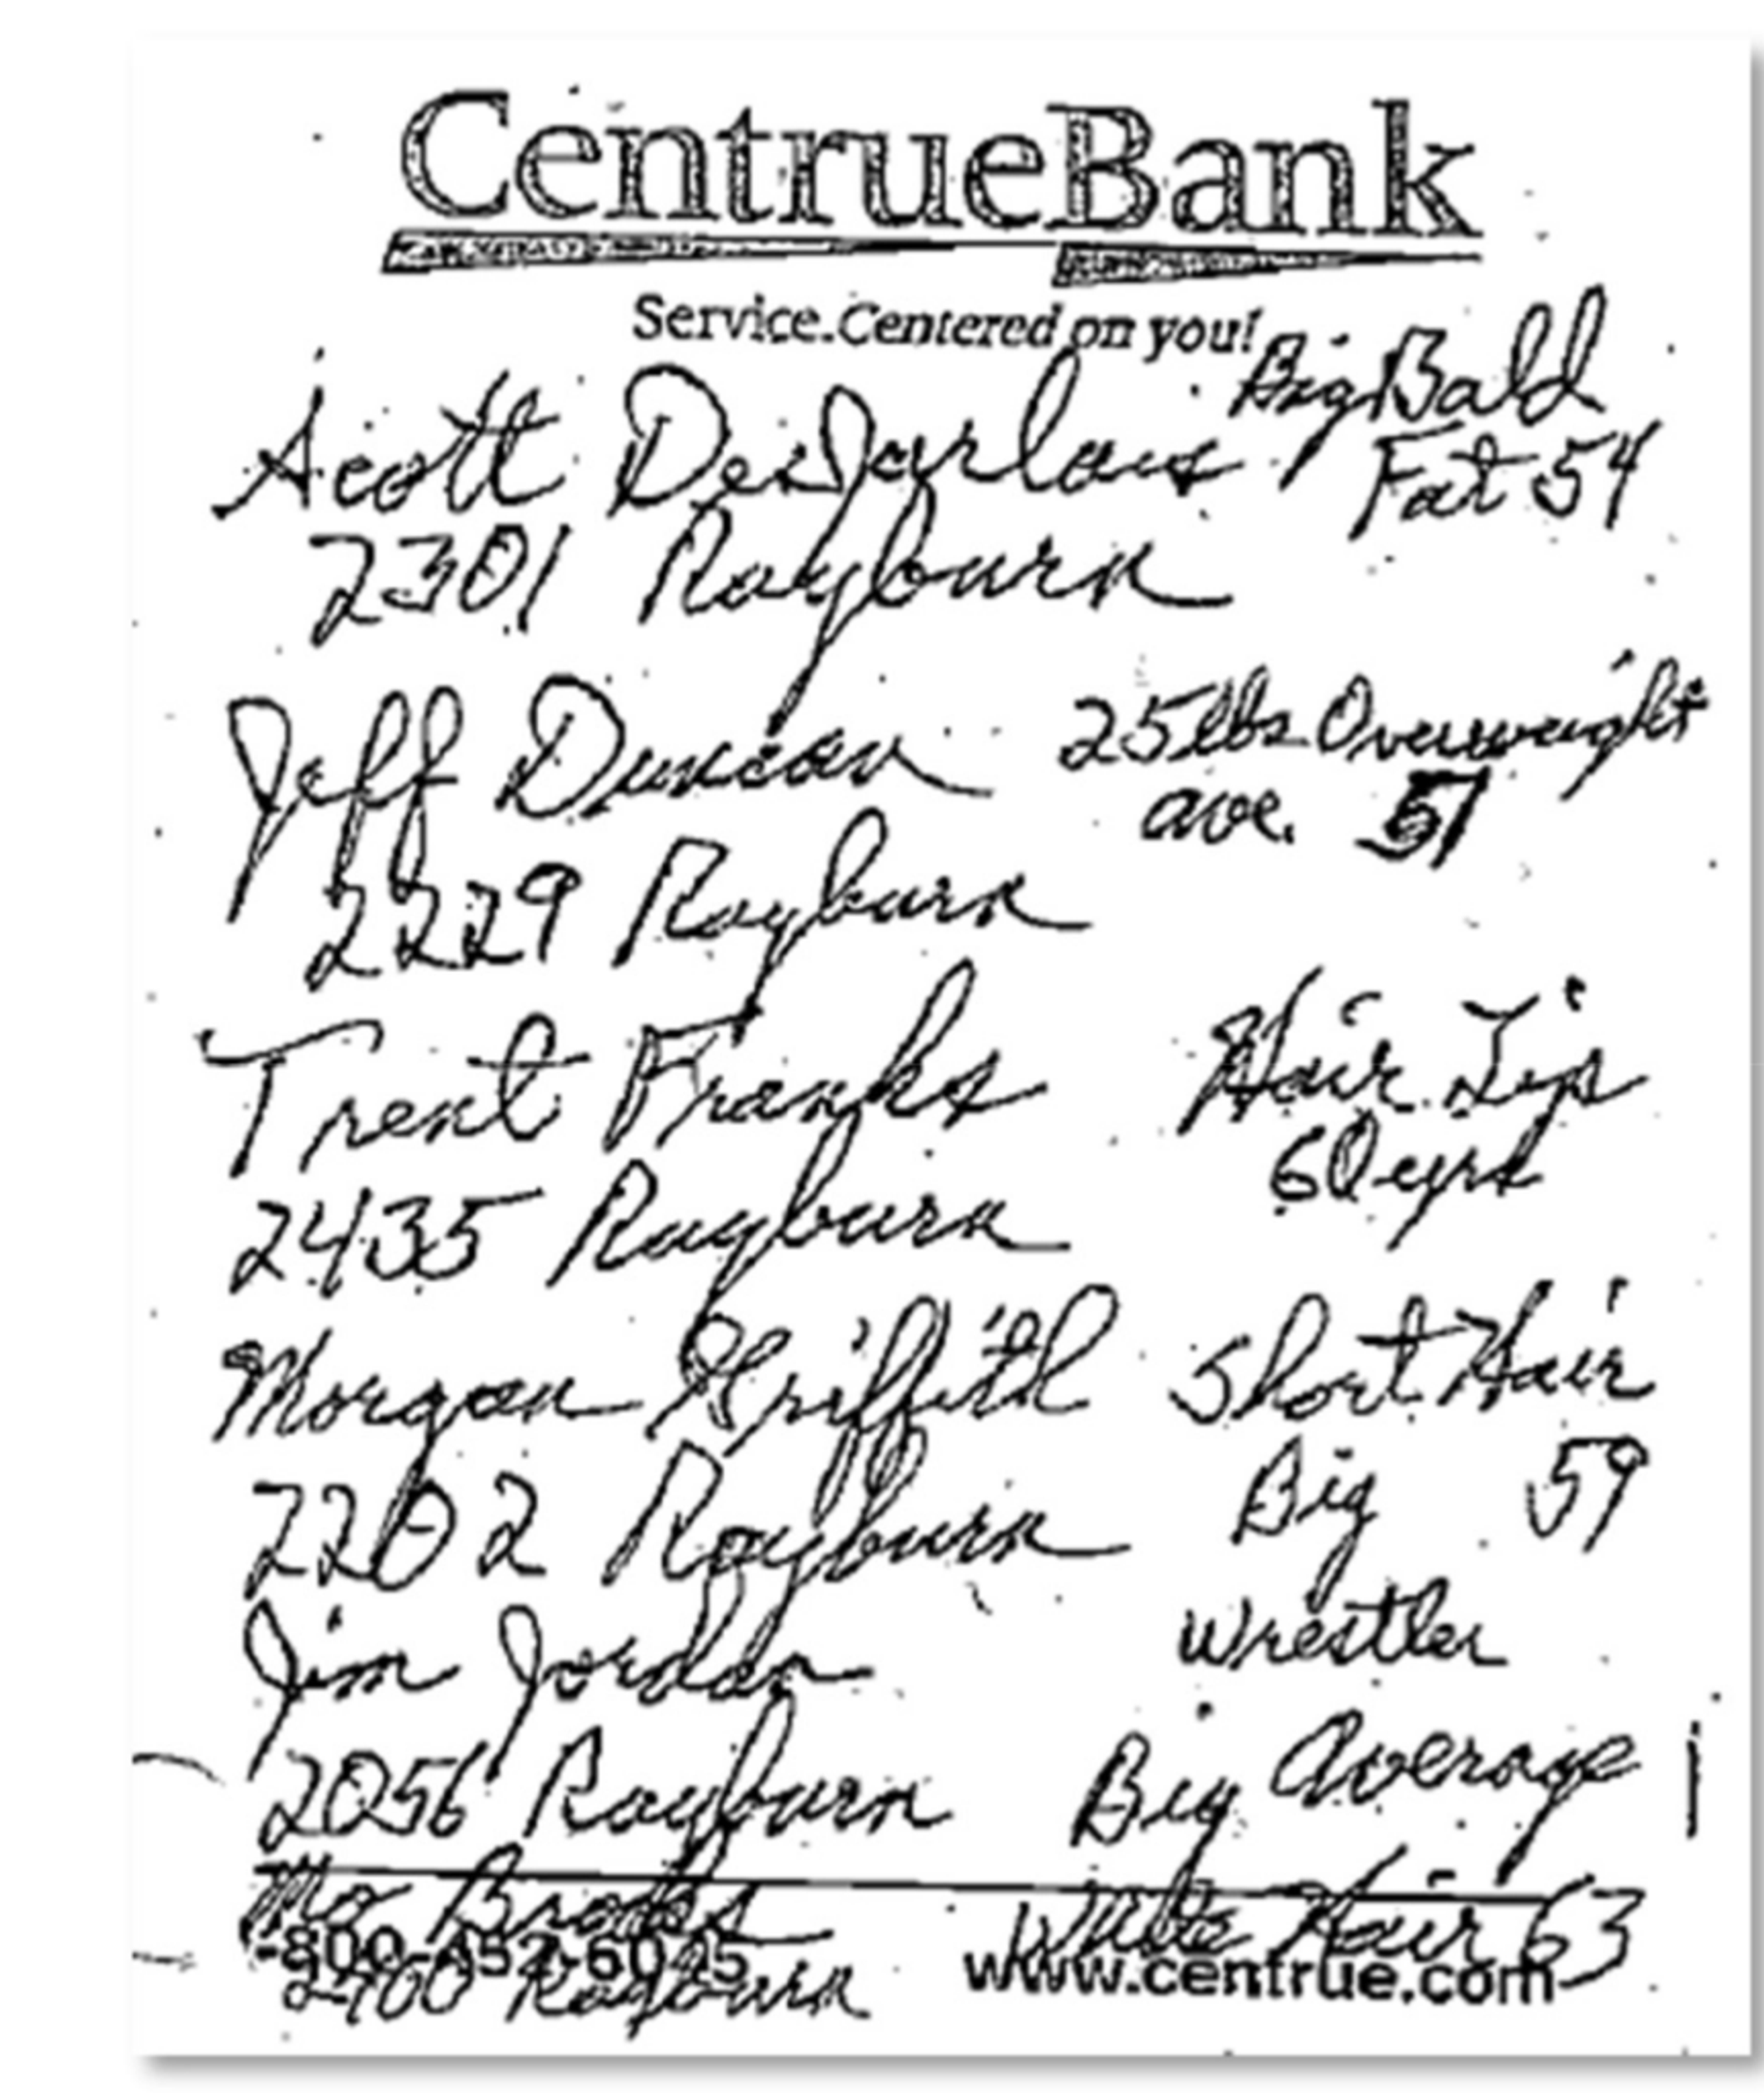 CentrueBank
Service. Centered on you!
Scott DesJarlais Big Bald
Fat 54
2301 Rayburn
Jeff Duncan 25 lbs Overweight
ave. 51
2229 Rayburn
Trent Franks Hair Lip
60 yrs
2435 Rayburn
Morgan Griffith Short Hair
2202 Rayburn Big 59
Jim Jordan Wrestler
2056 Rayburn Big Average
Mo Brooks White Hair 63
-800-452-6045 www.centrue.com
2400 Rayburn